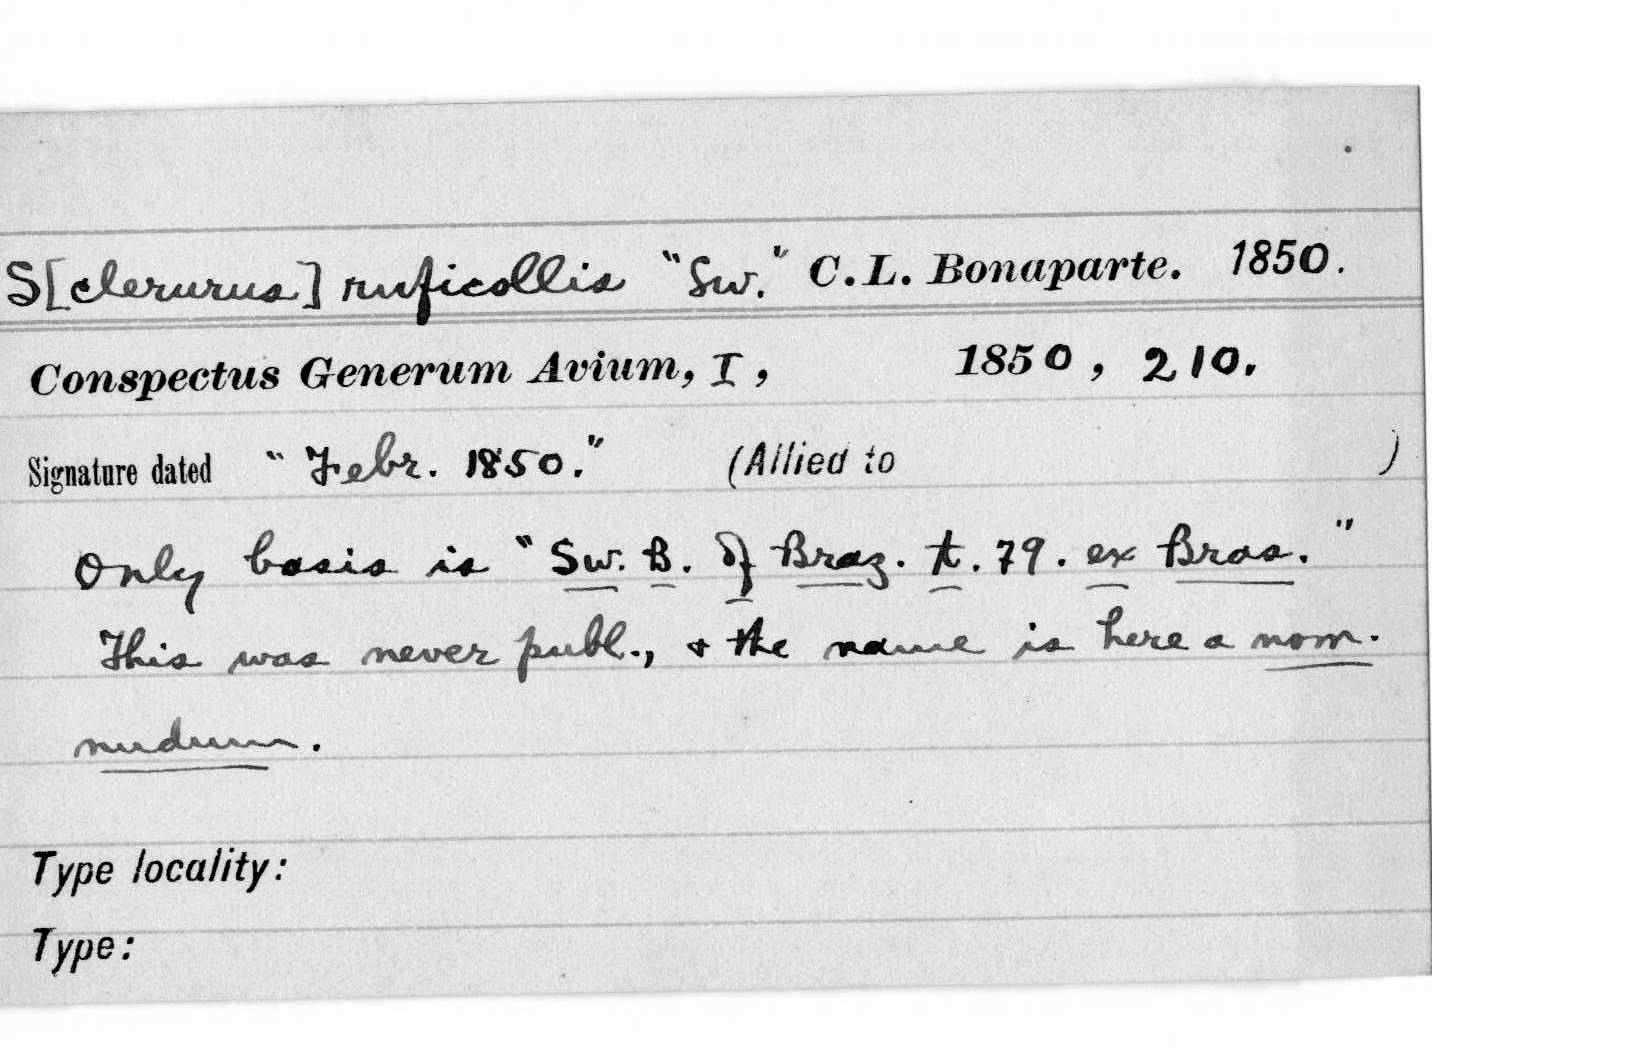 S[clerurus] ruficollis "Sw." C. L. Bonaparte. 1850.
Conspectus Generum Avium, I, 1850, 210.
Signature dated "Febr. 1850." (Allied to )
Only basis is "Sw. B. of Braz. t. 79. ex Bras."
This was never publ., + the name is here a nom.
nudum.
Type locality:
Type: